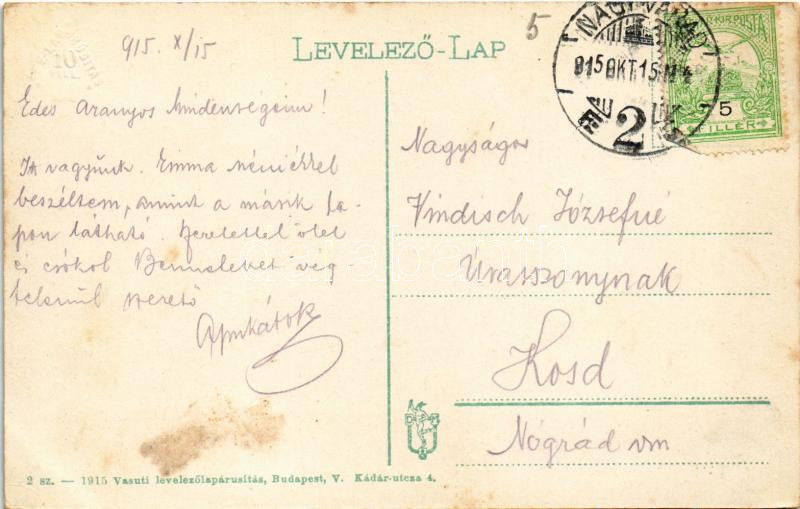 5
915. X/15
LEVELEZŐ-LAP
NAGYVÁRAD
915 OKT 15
2
5
FILLÉR
Édes Aranyos Mindenségeim!
Itt vagyunk. Emma nénivel
beszéltem, amint a másik la-
pon látható. Szeretettel ölel
és csókol Benneteket vég-
telenül szerető
Apukátok
Nagyságos
Vindisch Józsefné
Úrasszonynak
Kosd
Nógrád vm
2 sz. — 1915 Vasuti levelezőlapárusitás, Budapest, V. Kádár-utcza 4.